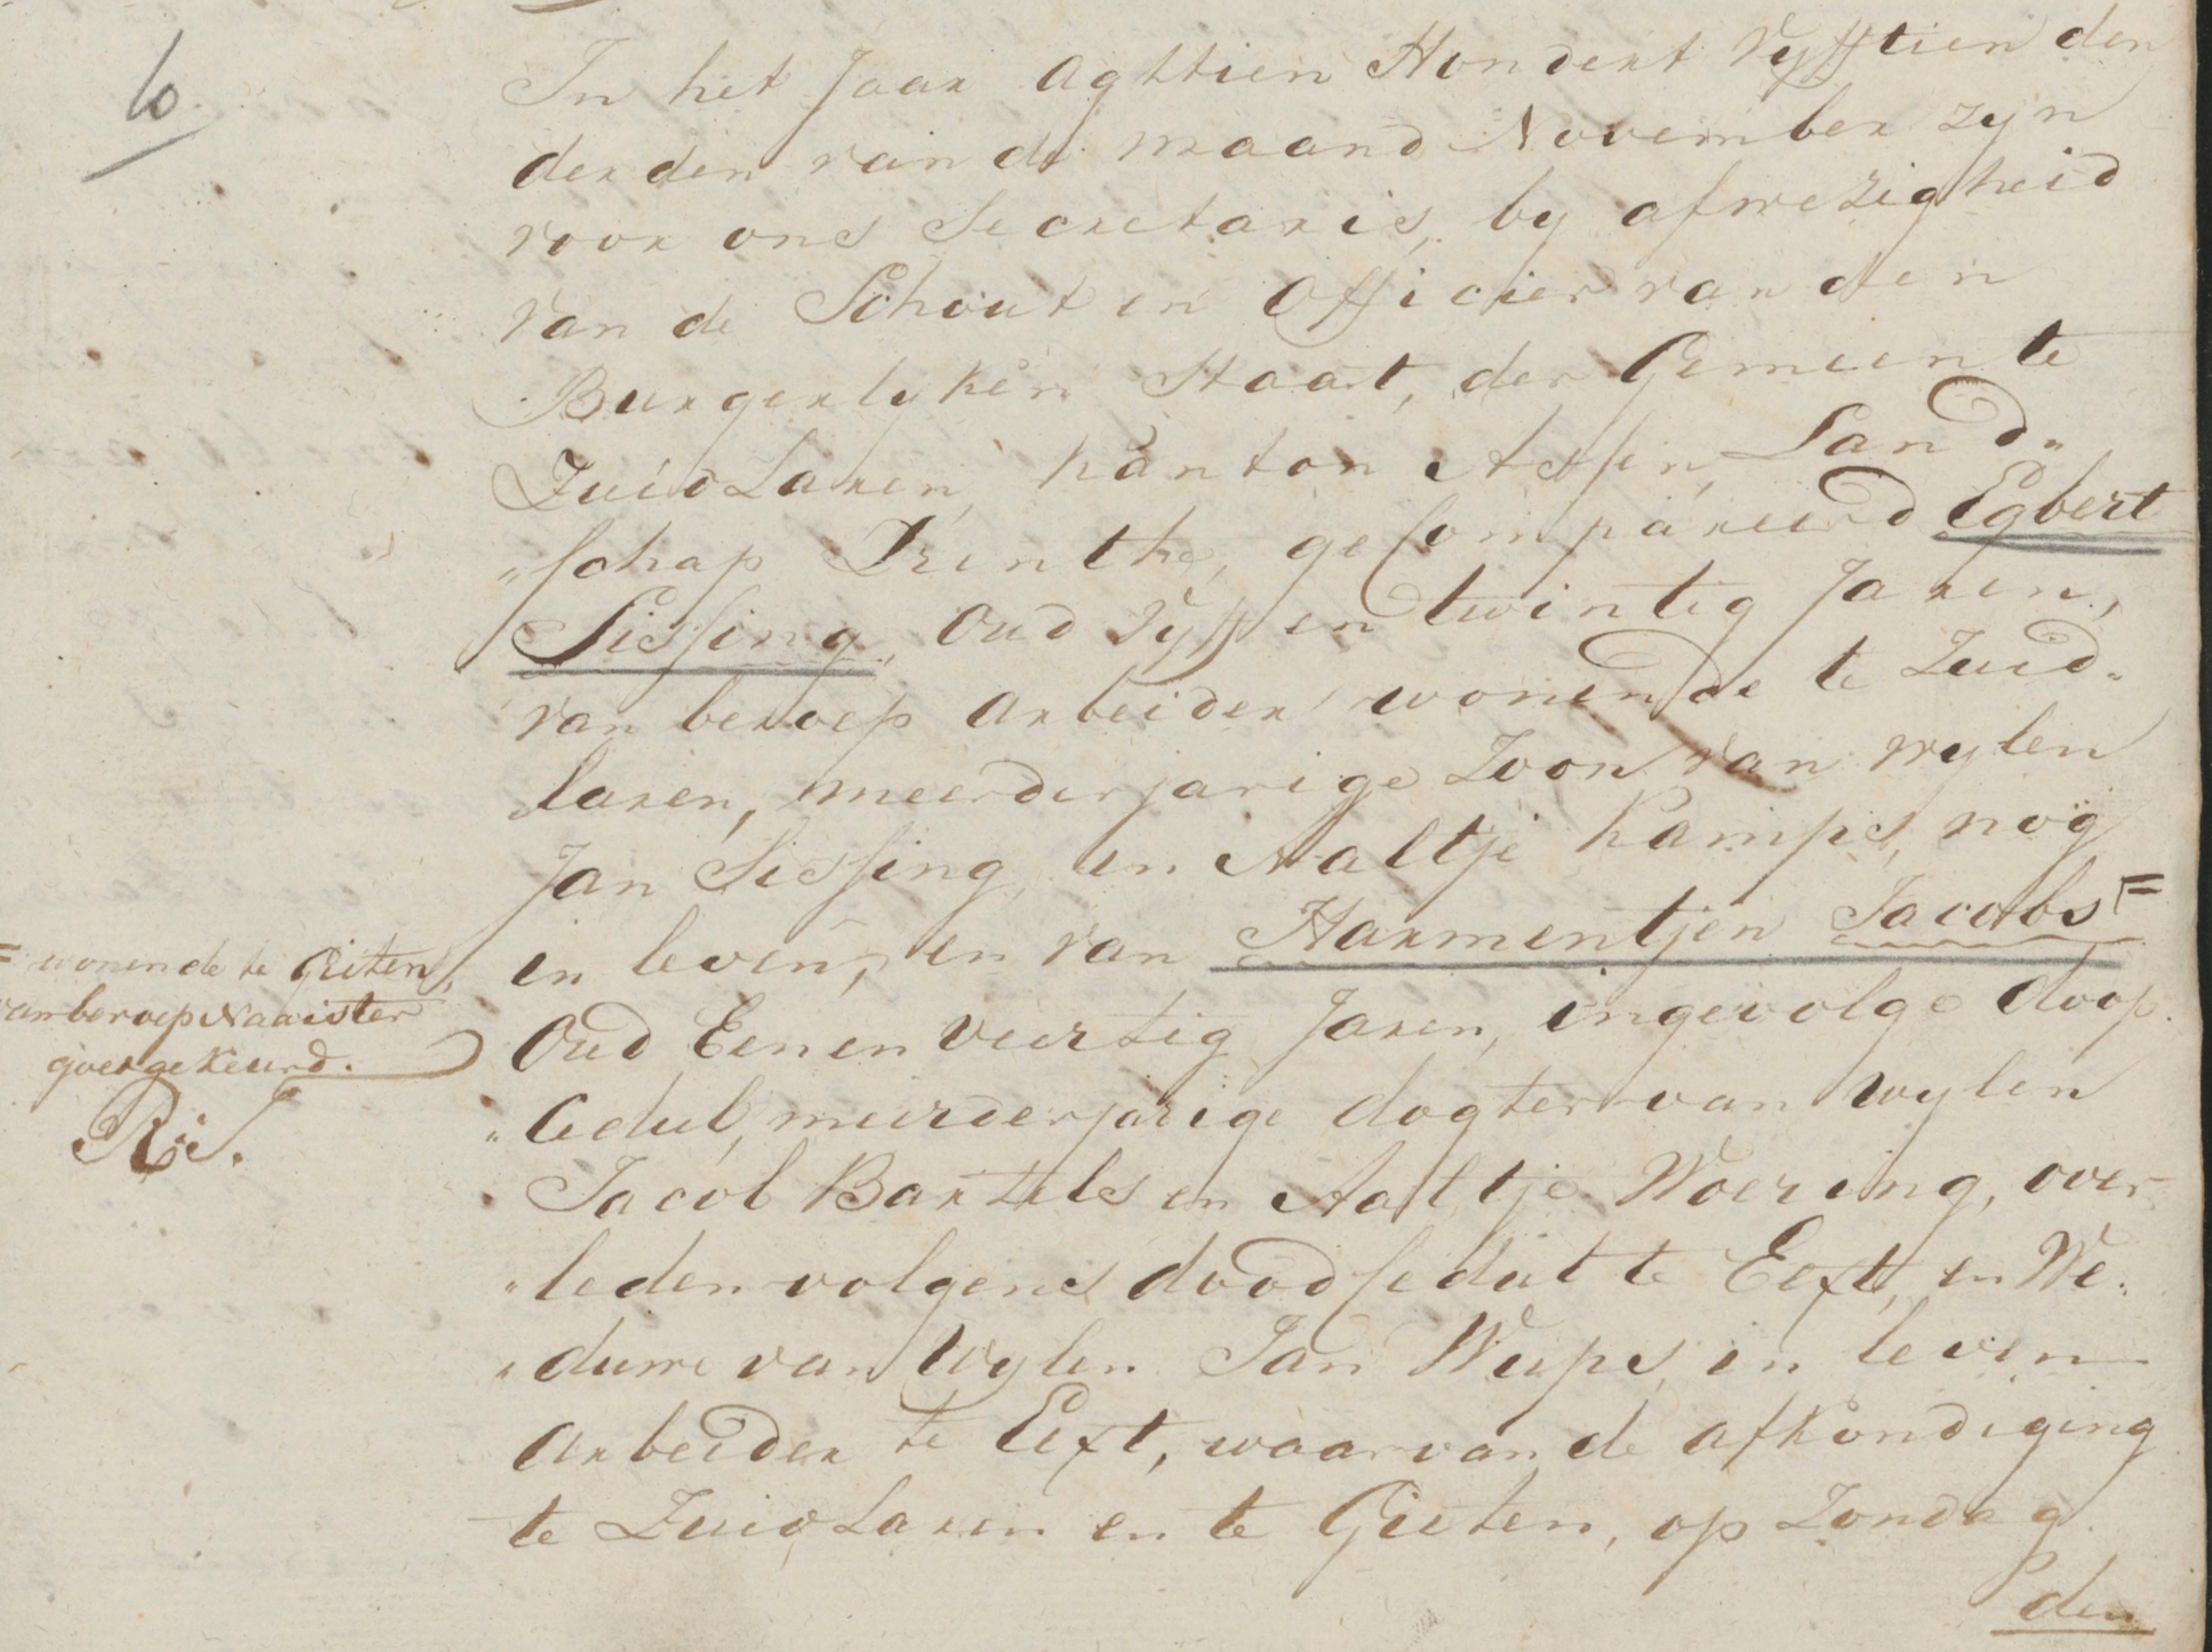 10
In het Jaar agttien Hondert Vyfftien den
derden van de maand November zyn
voor ons Secretaris, by afwezigheid
van de Schout en Officier van den
Burgerlyken Staat, der Gemeente
Zuidlaren, kanton Assen, Land„
„schap Drenthe, gecompareerd Egbert
Sissing, Oud Vyff en twintig Jaren,
van beroep arbeider wonende te Zuid„
laren, meerderjarige Zoon van wylen
Jan Sissing, en Aaltje Kamps, nog
in leven, en van Harmentjen Jacobs =
= wonende te Gieten,
van beroep Naaister
goedgekeurd.
Oud Eenenveertig Jaren, ingevolge doop
„Cedul, meerderjarige dogter van wylen
Jacob Bartels en Aaltje Woering, over
„leden volgens doodsedul te Eext, en We„
„duwe van Wylen Jan Weips, in leven
arbeider te Eext, waarvan de afkondiging
te Zuidlaren en te Gieten, op Zondag
den